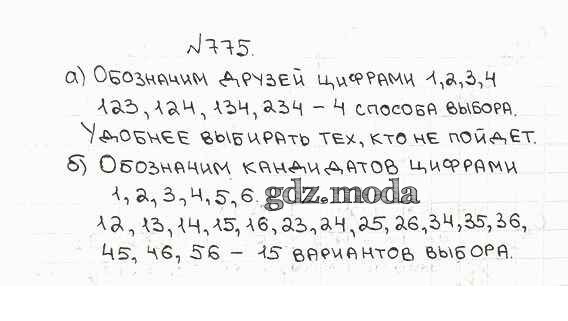 №775.
а) Обозначим друзей цифрами 1,2,3,4
123, 124, 134, 234 – 4 способа выбора.
Удобнее выбирать тех, кто не пойдет.
б) Обозначим кандидатов цифрами
1, 2, 3, 4, 5, 6. gdz.moda
12, 13, 14, 15, 16, 23, 24, 25, 26, 34, 35, 36,
45, 46, 56 – 15 вариантов выбора.